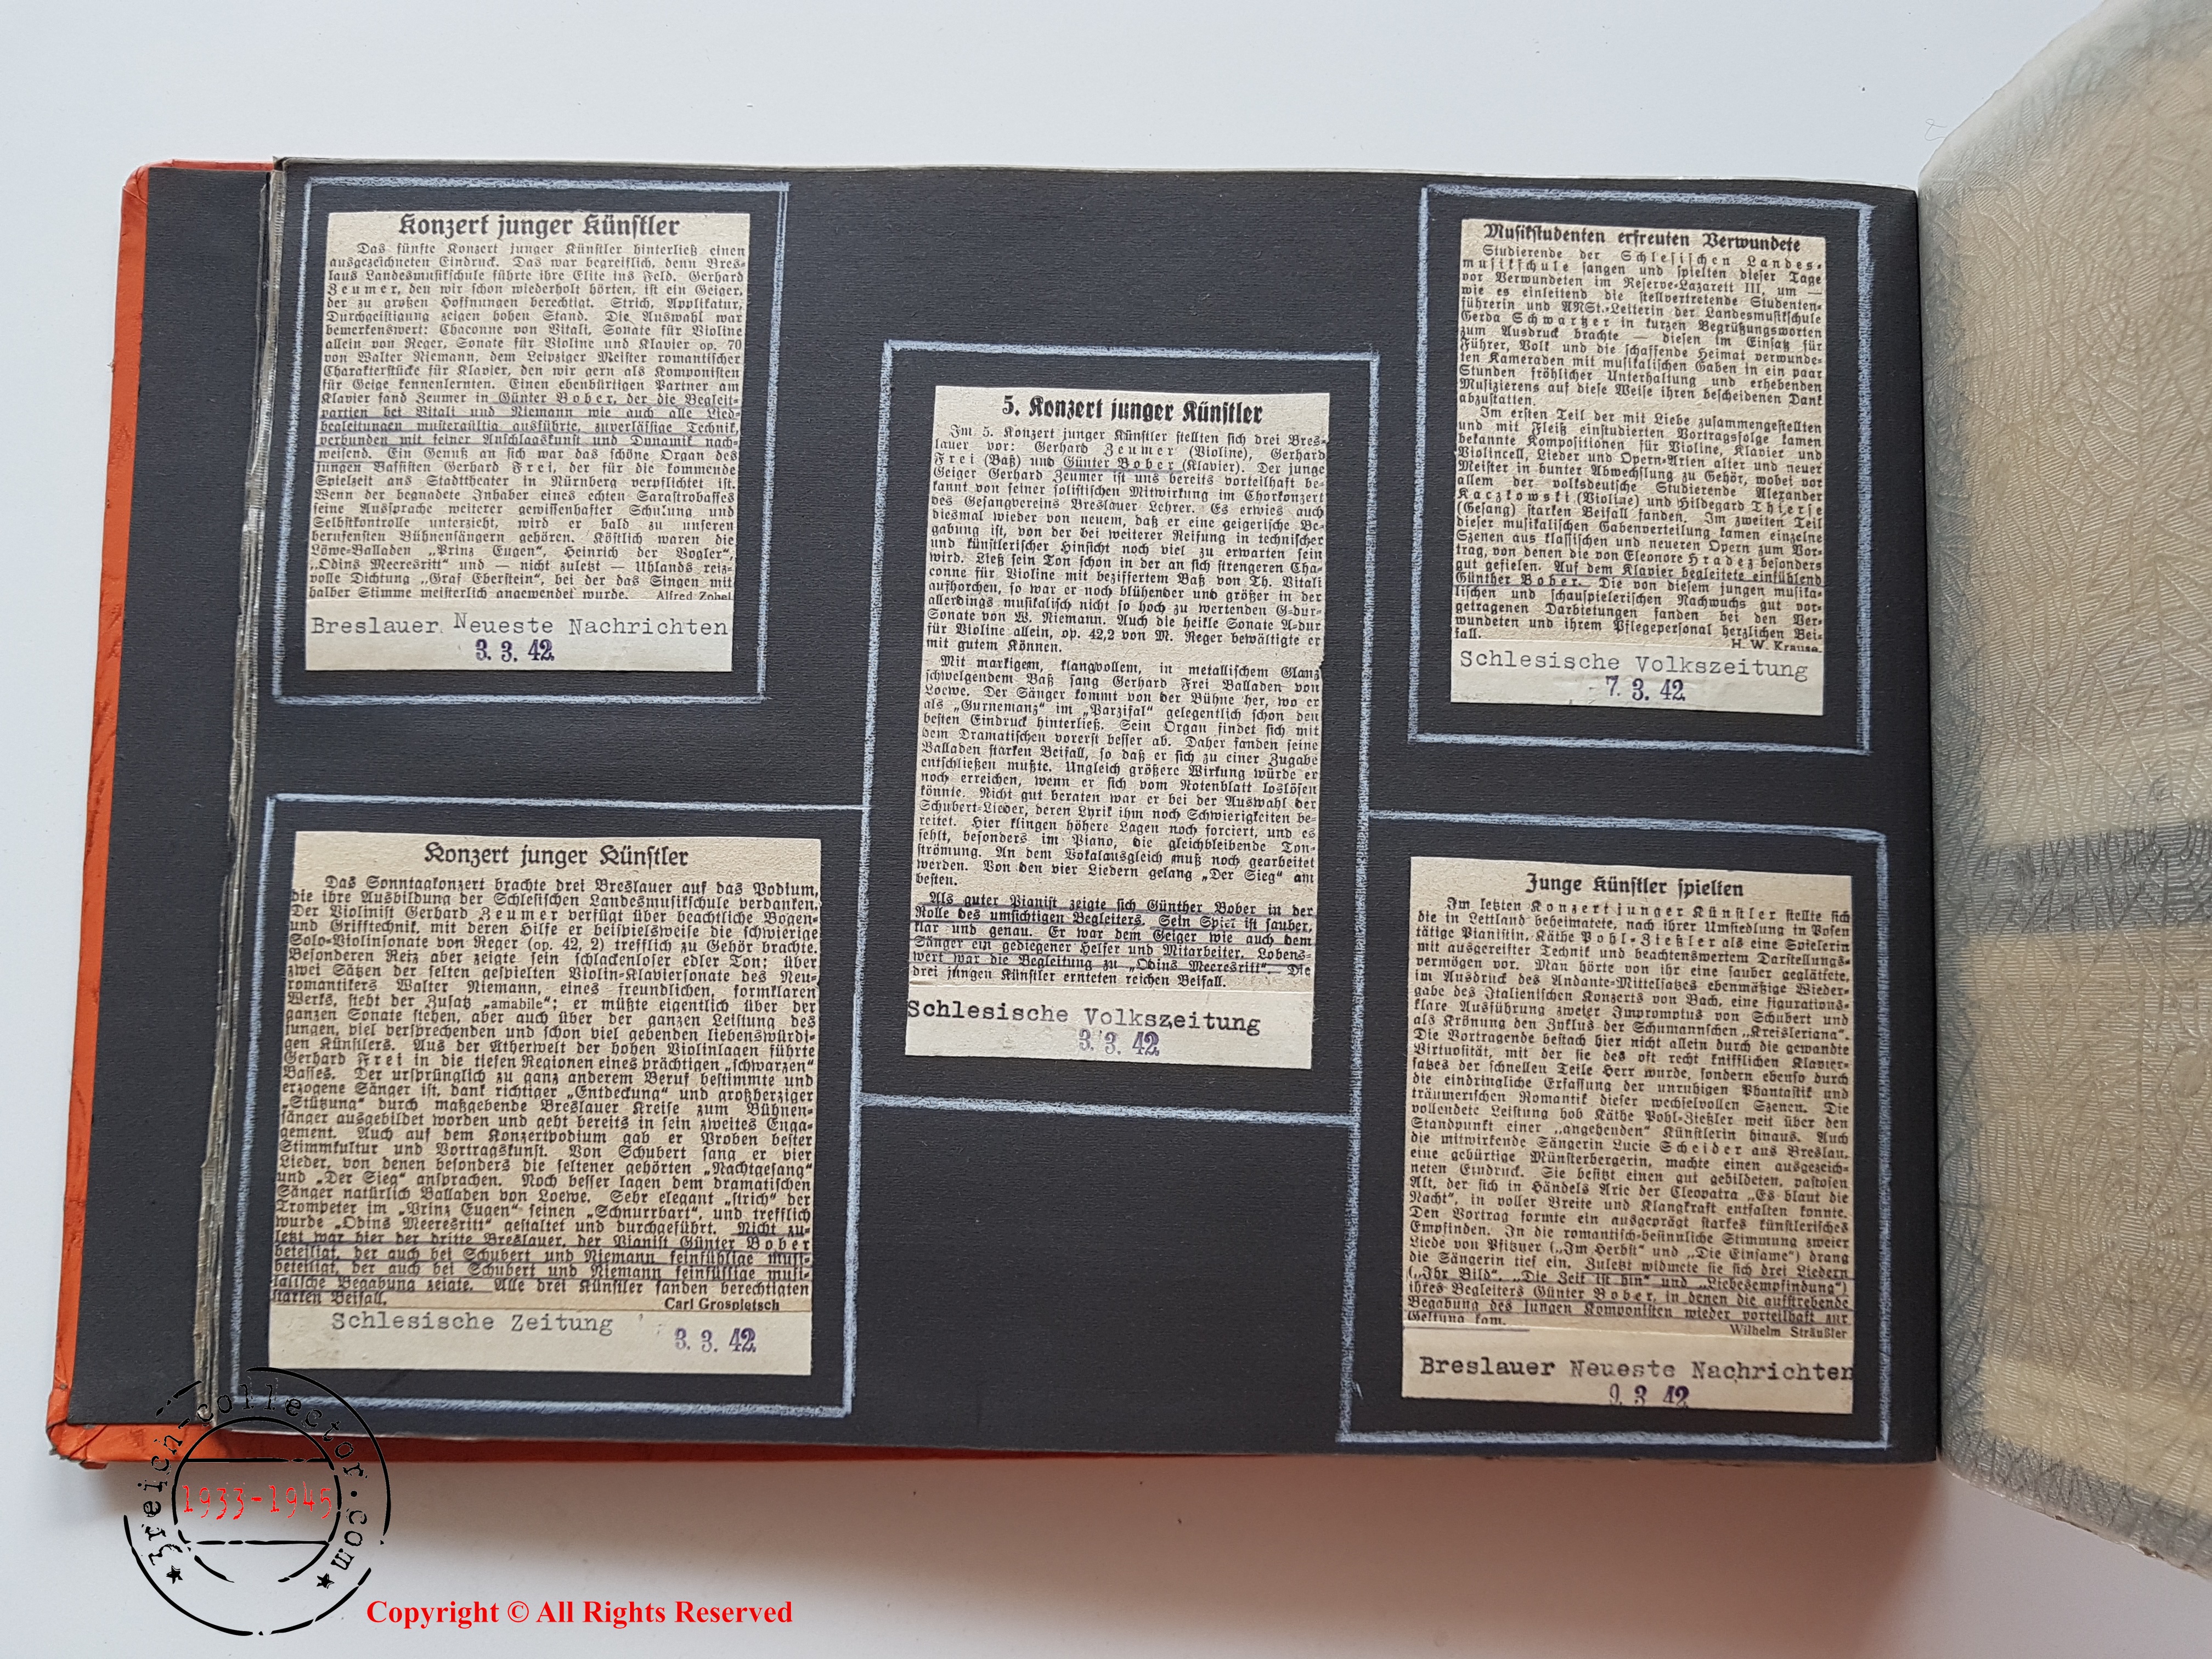 Konzert junger Künstler
Das fünfte Konzert junger Künstler hinterließ einen
ausgezeichneten Eindruck. Das war begreiflich, denn Bres-
laus Landesmusikschule führte ihre Elite ins Feld. Gerhard
Zeumer, den wir schon wiederholt hörten, ist ein Geiger,
der zu großen Hoffnungen berechtigt. Strich, Applikatur,
Durchgeistigung zeigen hohen Stand. Die Auswahl war
bemerkenswert: Chaconne von Vitali, Sonate für Violine
allein von Reger, Sonate für Violine und Klavier op. 70
von Walter Niemann, dem Leipziger Meister romantischer
Charakterstücke für Klavier, den wir gern als Komponisten
für Geige kennenlernten. Einen ebenbürtigen Partner am
Klavier fand Zeumer in Günter Bober, der die Begleit-
partien bei Vitali und Niemann wie auch alle Lied-
begleitungen mustergültig ausführte, zuverlässige Technik,
verbunden mit feiner Anschlagskunst und Dynamik nach-
weisend. Ein Genuß an sich war das schöne Organ des
jungen Bassisten Gerhard Frei, der für die kommende
Spielzeit ans Stadttheater in Nürnberg verpflichtet ist.
Wenn der begnadete Inhaber eines echten Sarastrobasses
seine Aussprache weiterer gewissenhafter Schulung und
Selbstkontrolle unterzieht, wird er bald zu unseren
berufensten Bühnensängern gehören. Köstlich waren die
Löwe-Balladen „Prinz Eugen“, Heinrich der Vogler“,
„Odins Meeresritt“ und — nicht zuletzt — Uhlands reiz-
volle Dichtung „Graf Eberstein“, bei der das Singen mit
halber Stimme meisterlich angewendet wurde. Alfred Zobel
Breslauer Neueste Nachrichten
3. 3. 42
Konzert junger Künstler
Das Sonntagkonzert brachte drei Breslauer auf das Podium,
die ihre Ausbildung der Schlesischen Landesmusikschule verdanken.
Der Violinist Gerhard Zeumer verfügt über beachtliche Bogen-
und Grifftechnik, mit deren Hilfe er beispielsweise die schwierige
Solo-Violinsonate von Reger (op. 42, 2) trefflich zu Gehör brachte.
Besonderen Reiz aber zeigte sein schlackenloser edler Ton; über
zwei Sätzen der selten gespielten Violin-Klaviersonate des Neu-
romantikers Walter Niemann, eines freundlichen, formklaren
Werks, steht der Zusatz „amabile“; er müßte eigentlich über der
ganzen Sonate stehen, aber auch über der ganzen Leistung des
jungen, viel versprechenden und schon viel gebenden liebenswürdi-
gen Künstlers. Aus der Ätherwelt der hohen Violinlagen führte
Gerhard Frei in die tiefen Regionen eines prächtigen „schwarzen“
Basses. Der ursprünglich zu ganz anderem Beruf bestimmte und
erzogene Sänger ist, dank richtiger „Entdeckung“ und großherziger
„Stützung“ durch maßgebende Breslauer Kreise zum Bühnen-
sänger ausgebildet worden und geht bereits in sein zweites Enga-
gement. Auch auf dem Konzertpodium gab er Proben bester
Stimmkultur und Vortragskunst. Von Schubert sang er vier
Lieder, von denen besonders die seltener gehörten „Nachtgesang“
und „Der Sieg“ ansprachen. Noch besser lagen dem dramatischen
Sänger natürlich Balladen von Loewe. Sehr elegant „strich“ der
Trompeter im „Prinz Eugen“ seinen „Schnurrbart“, und trefflich
wurde „Odins Meeresritt“ gestaltet und durchgeführt. Nicht zu-
letzt war hier der dritte Breslauer, der Pianist Günter Bober
beteiligt, der auch bei Schubert und Niemann feinfühlige musi-
beteiligt, der auch bei Schubert und Niemann feinfühlige musi-
kalische Begabung zeigte. Alle drei Künstler fanden berechtigten
starken Beifall. Carl Grospietsch
Schlesische Zeitung 3. 3. 42
5. Konzert junger Künstler
Im 5. Konzert junger Künstler stellten sich drei Bres-
lauer vor: Gerhard Zeumer (Violine), Gerhard
Frei (Baß) und Günter Bober (Klavier). Der junge
Geiger Gerhard Zeumer ist uns bereits vorteilhaft be-
kannt von seiner solistischen Mitwirkung im Chorkonzert
des Gesangvereins Breslauer Lehrer. Es erwies auch
diesmal wieder von neuem, daß er eine geigerische Be-
gabung ist, von der bei weiterer Reifung in technischer
und künstlerischer Hinsicht noch viel zu erwarten sein
wird. Ließ sein Ton schon in der an sich strengeren Cha-
conne für Violine mit beziffertem Baß von Th. Vitali
aufhorchen, so war er noch blühender und größer in der
allerdings musikalisch nicht so hoch zu wertenden G-dur-
Sonate von W. Niemann. Auch die heikle Sonate A-dur
für Violine allein, op. 42,2 von M. Reger bewältigte er
mit gutem Können.
Mit markigem, klangvollem, in metallischem Glanz
schwelgendem Baß sang Gerhard Frei Balladen von
Loewe. Der Sänger kommt von der Bühne her, wo er
als „Gurnemanz“ im „Parzifal“ gelegentlich schon den
besten Eindruck hinterließ. Sein Organ findet sich mit
dem Dramatischen vorerst besser ab. Daher fanden seine
Balladen starken Beifall, so daß er sich zu einer Zugabe
entschließen mußte. Ungleich größere Wirkung würde er
noch erreichen, wenn er sich vom Notenblatt loslösen
könnte. Nicht gut beraten war er bei der Auswahl der
Schubert-Lieder, deren Lyrik ihm noch Schwierigkeiten be-
reitet. Hier klingen höhere Lagen noch forciert, und es
fehlt, besonders im Piano, die gleichbleibende Ton-
strömung. An dem Vokalausgleich muß noch gearbeitet
werden. Von den vier Liedern gelang „Der Sieg“ am
besten.
Als guter Pianist zeigte sich Günther Bober in der
Rolle des umsichtigen Begleiters. Sein Spiel ist sauber,
klar und genau. Er war dem Geiger wie auch dem
Sänger ein gediegener Helfer und Mitarbeiter. Lobens-
wert war die Begleitung zu „Odins Meeresritt“. Die
drei jungen Künstler ernteten reichen Beifall.
Schlesische Volkszeitung
3. 3. 42
Musikstudenten erfreuten Verwundete
Studierende der Schlesischen Landes-
musikschule sangen und spielten dieser Tage
vor Verwundeten im Reserve-Lazarett III, um —
wie es einleitend die stellvertretende Studenten-
führerin und ANSt.-Leiterin der Landesmusikschule
Gerda Schwartzer in kurzen Begrüßungsworten
zum Ausdruck brachte — diesen im Einsatz für
Führer, Volk und die schaffende Heimat verwunde-
ten Kameraden mit musikalischen Gaben in ein paar
Stunden fröhlicher Unterhaltung und erhebenden
Musizierens auf diese Weise ihren bescheidenen Dank
abzustatten.
Im ersten Teil der mit Liebe zusammengestellten
und mit Fleiß einstudierten Vortragsfolge kamen
bekannte Kompositionen für Violine, Klavier und
Violincell, Lieder und Opern-Arien alter und neuer
Meister in bunter Abwechslung zu Gehör, wobei vor
allem der volksdeutsche Studierende Alexander
Kaczkowski (Violine) und Hildegard Thierse
(Gesang) starken Beifall fanden. Im zweiten Teil
dieser musikalischen Gabenverteilung kamen einzelne
Szenen aus klassischen und neueren Opern zum Vor-
trag, von denen die von Eleonore Hradez besonders
gut gefielen. Auf dem Klavier begleitete einfühlend
Günther Bober. Die von diesem jungen musika-
lischen und schauspielerischen Nachwuchs gut vor-
getragenen Darbietungen fanden bei den Ver-
wundeten und ihrem Pflegepersonal herzlichen Bei-
fall. H. W. Krause.
Schlesische Volkszeitung
7. 3. 42
Junge Künstler spielten
Im letzten Konzert junger Künstler stellte sich
die in Lettland beheimatete, nach ihrer Umsiedlung in Posen
tätige Pianistin, Käthe Pohl-Zießler als eine Spielerin
mit ausgereifter Technik und beachtenswertem Darstellungs-
vermögen vor. Man hörte von ihr eine sauber geglättete,
im Ausdruck des Andante-Mittelsatzes ebenmäßige Wieder-
gabe des Italienischen Konzerts von Bach, eine figurations-
klare Ausführung zweier Impromptus von Schubert und
als Krönung den Zyklus der Schumannschen „Kreisleriana“.
Die Vortragende bestach hier nicht allein durch die gewandte
Virtuosität, mit der sie des oft recht knifflichen Klavier-
satzes der schnellen Teile Herr wurde, sondern ebenso durch
die eindringliche Erfassung der unruhigen Phantastik und
träumerischen Romantik dieser wechselvollen Szenen. Die
vollendete Leistung hob Käthe Pohl-Zießler weit über den
Standpunkt einer „angehenden“ Künstlerin hinaus. Auch
die mitwirkende Sängerin Lucie Scheider aus Breslau,
eine gebürtige Münsterbergerin, machte einen ausgezeich-
neten Eindruck. Sie besitzt einen gut gebildeten, pastosen
Alt, der sich in Händels Arie der Cleopatra „Es blaut die
Nacht“, in voller Breite und Klangkraft entfalten konnte.
Den Vortrag formte ein ausgeprägt starkes künstlerisches
Empfinden. In die romantisch-besinnliche Stimmung zweier
Liede von Pfitzner („Im Herbst“ und „Die Einsame“) drang
die Sängerin tief ein. Zuletzt widmete sie sich drei Liedern
(„Ihr Bild“, „Die Zeit ist hin“ und „Liebesempfindung“)
ihres Begleiters Günter Bober, in denen die aufstrebende
Begabung des jungen Komponisten wieder vorteilhaft zur
Geltung kam. Wilhelm Sträußler
Breslauer Neueste Nachrichten
9. 3. 42
3reich-collector.com
1933-1945
Copyright © All Rights Reserved